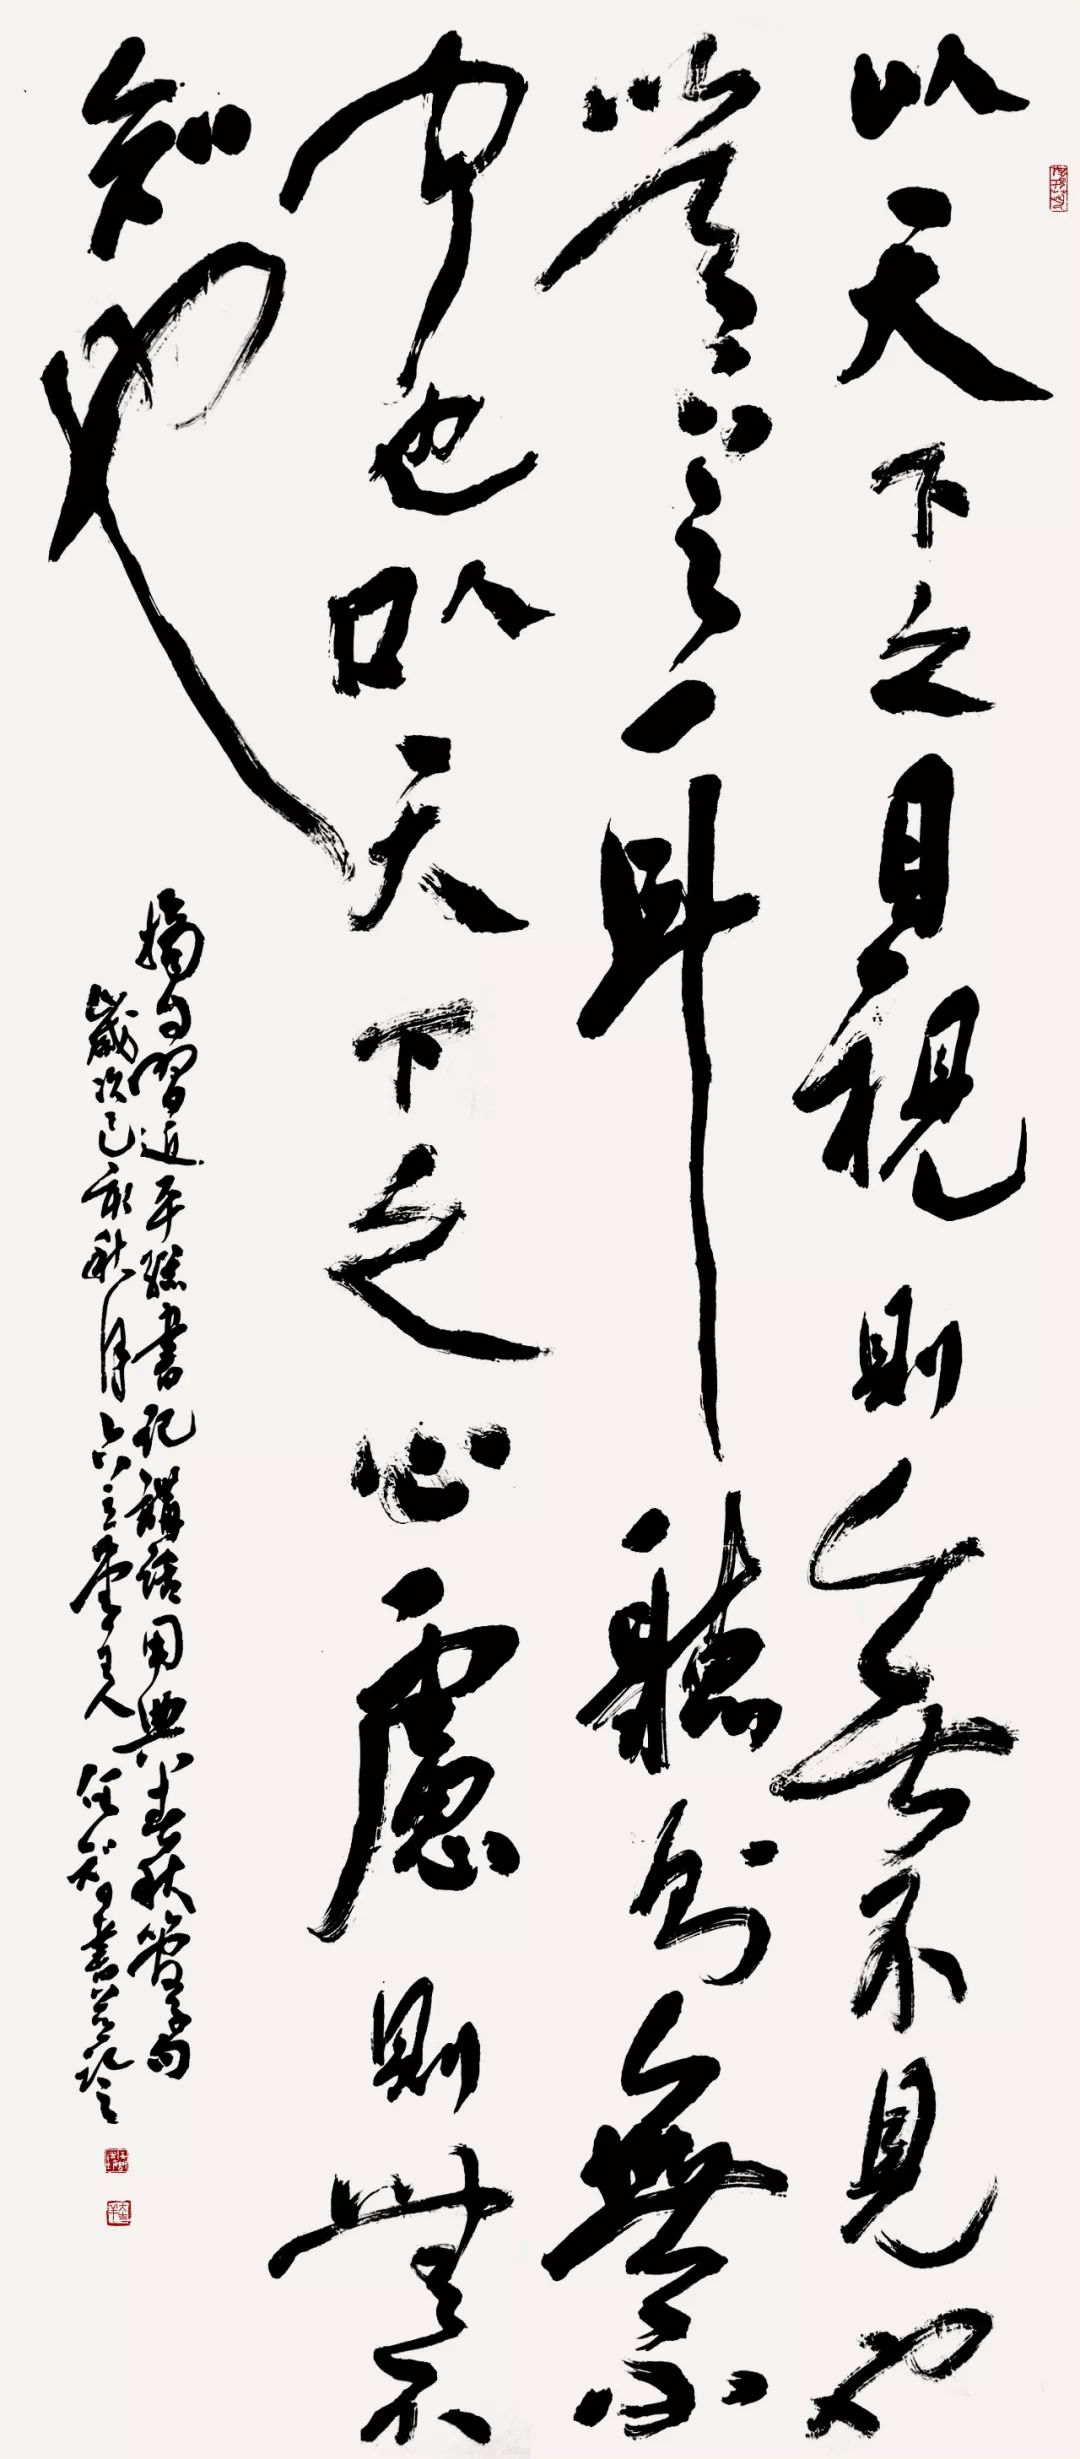 以天下之目視則無不見也
以天下之耳聽則無不
聞也以天下之心慮則無不
知也
摘句習近平總書記講話用典春秋管子句
歲次己亥秋月堂主人任書